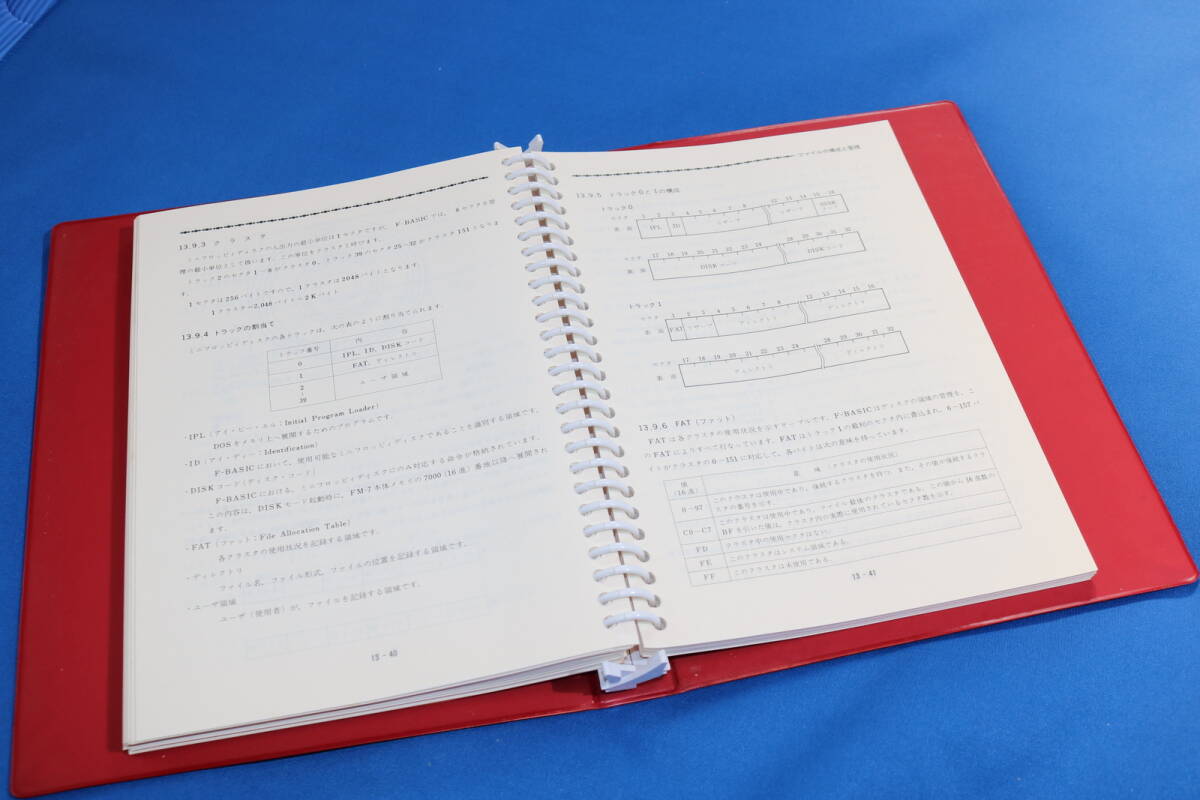 13.9.3 クラスタ
ミニフロッピィディスクの入出力の最小単位は1セクタですが、F-BASICでは、8セクタを管
理の最小単位として扱います。この単位をクラスタと呼びます。
トラック2のセクタ1~8がクラスタ0、トラック39のセクタ25~32がクラスタ151となりま
す。
1セクタは256バイトですので、1クラスタは2048バイトとなります。
1クラスタ=2,048バイト=2Kバイト
13.9.4 トラックの割当て
ミニフロッピィディスクの各トラックは、次の表のように割り当てられます。
トラック番号 内容
0 IPL、ID、DISKコード
1 FAT、ディレクトリ
2
~
39
ユーザ領域
・IPL(アイ・ピー・エル:Initial Program Loader)
DOSをメモリ上へ展開するためのプログラムです。
・ID(アイ・ディー:Identification)
F-BASICにおいて、使用可能なミニフロッピィディスクであることを識別する領域です。
・DISKコード(ディスク・コード)
F-BASICにおける、ミニフロッピィディスクにのみ対応する命令が格納されています。
この内容は、DISKモード起動時に、FM-7本体メモリの7000(16進)番地以降へ展開され
ます。
・FAT(ファット:File Allocation Table)
各クラスタの使用状況を記録する領域です。
・ディレクトリ
ファイル名、ファイル形式、ファイルの位置を記録する領域です。
・ユーザ領域
ユーザ(使用者)が、ファイルを記録する領域です。
13-40
ファイルの構成と管理
13.9.5 トラック0と1の構成
トラック0
セクタ 1 2 3 4 5 6 7 8 12 13 14 15 16
表面 IPL ID リザーブ リザーブ DISK
セクタ 17 18 19 20 21 22 23 24 28 29 30 31 32
裏面 DISKコード DISKコード
トラック1
セクタ 1 2 3 4 5 6 7 8 12 13 14 15 16
表面 FAT リザーブ ディレクトリ ディレクトリ
セクタ 17 18 19 20 21 22 23 24 28 29 30 31 32
裏面 ディレクトリ ディレクトリ
13.9.6 FAT(ファット)
FATは各クラスタの使用状況を示すテーブルです。F-BASICはディスクの領域の管理を、こ
のFATによりすべて行なっています。FATはトラック1の最初のセクタ内に書込まれ、6~157バ
イトがクラスタの0~151に対応して、各バイトは次の意味を持っています。
値
(16進)
意味(クラスタの使用状況)
0~97 このクラスタは使用中であり、接続するクラスタを持つ。また、その値が接続するクラ
スタの番号を示す。
C0~C7 このクラスタは使用中であり、ファイル最後のクラスタである。この値から16進数の
BFを引いた値は、クラスタ内の実際に使用されているセクタ数を示す。
FD クラスタ中の使用セクタはない。
FE このクラスタはシステム領域である。
FF このクラスタは未使用である。
13-41